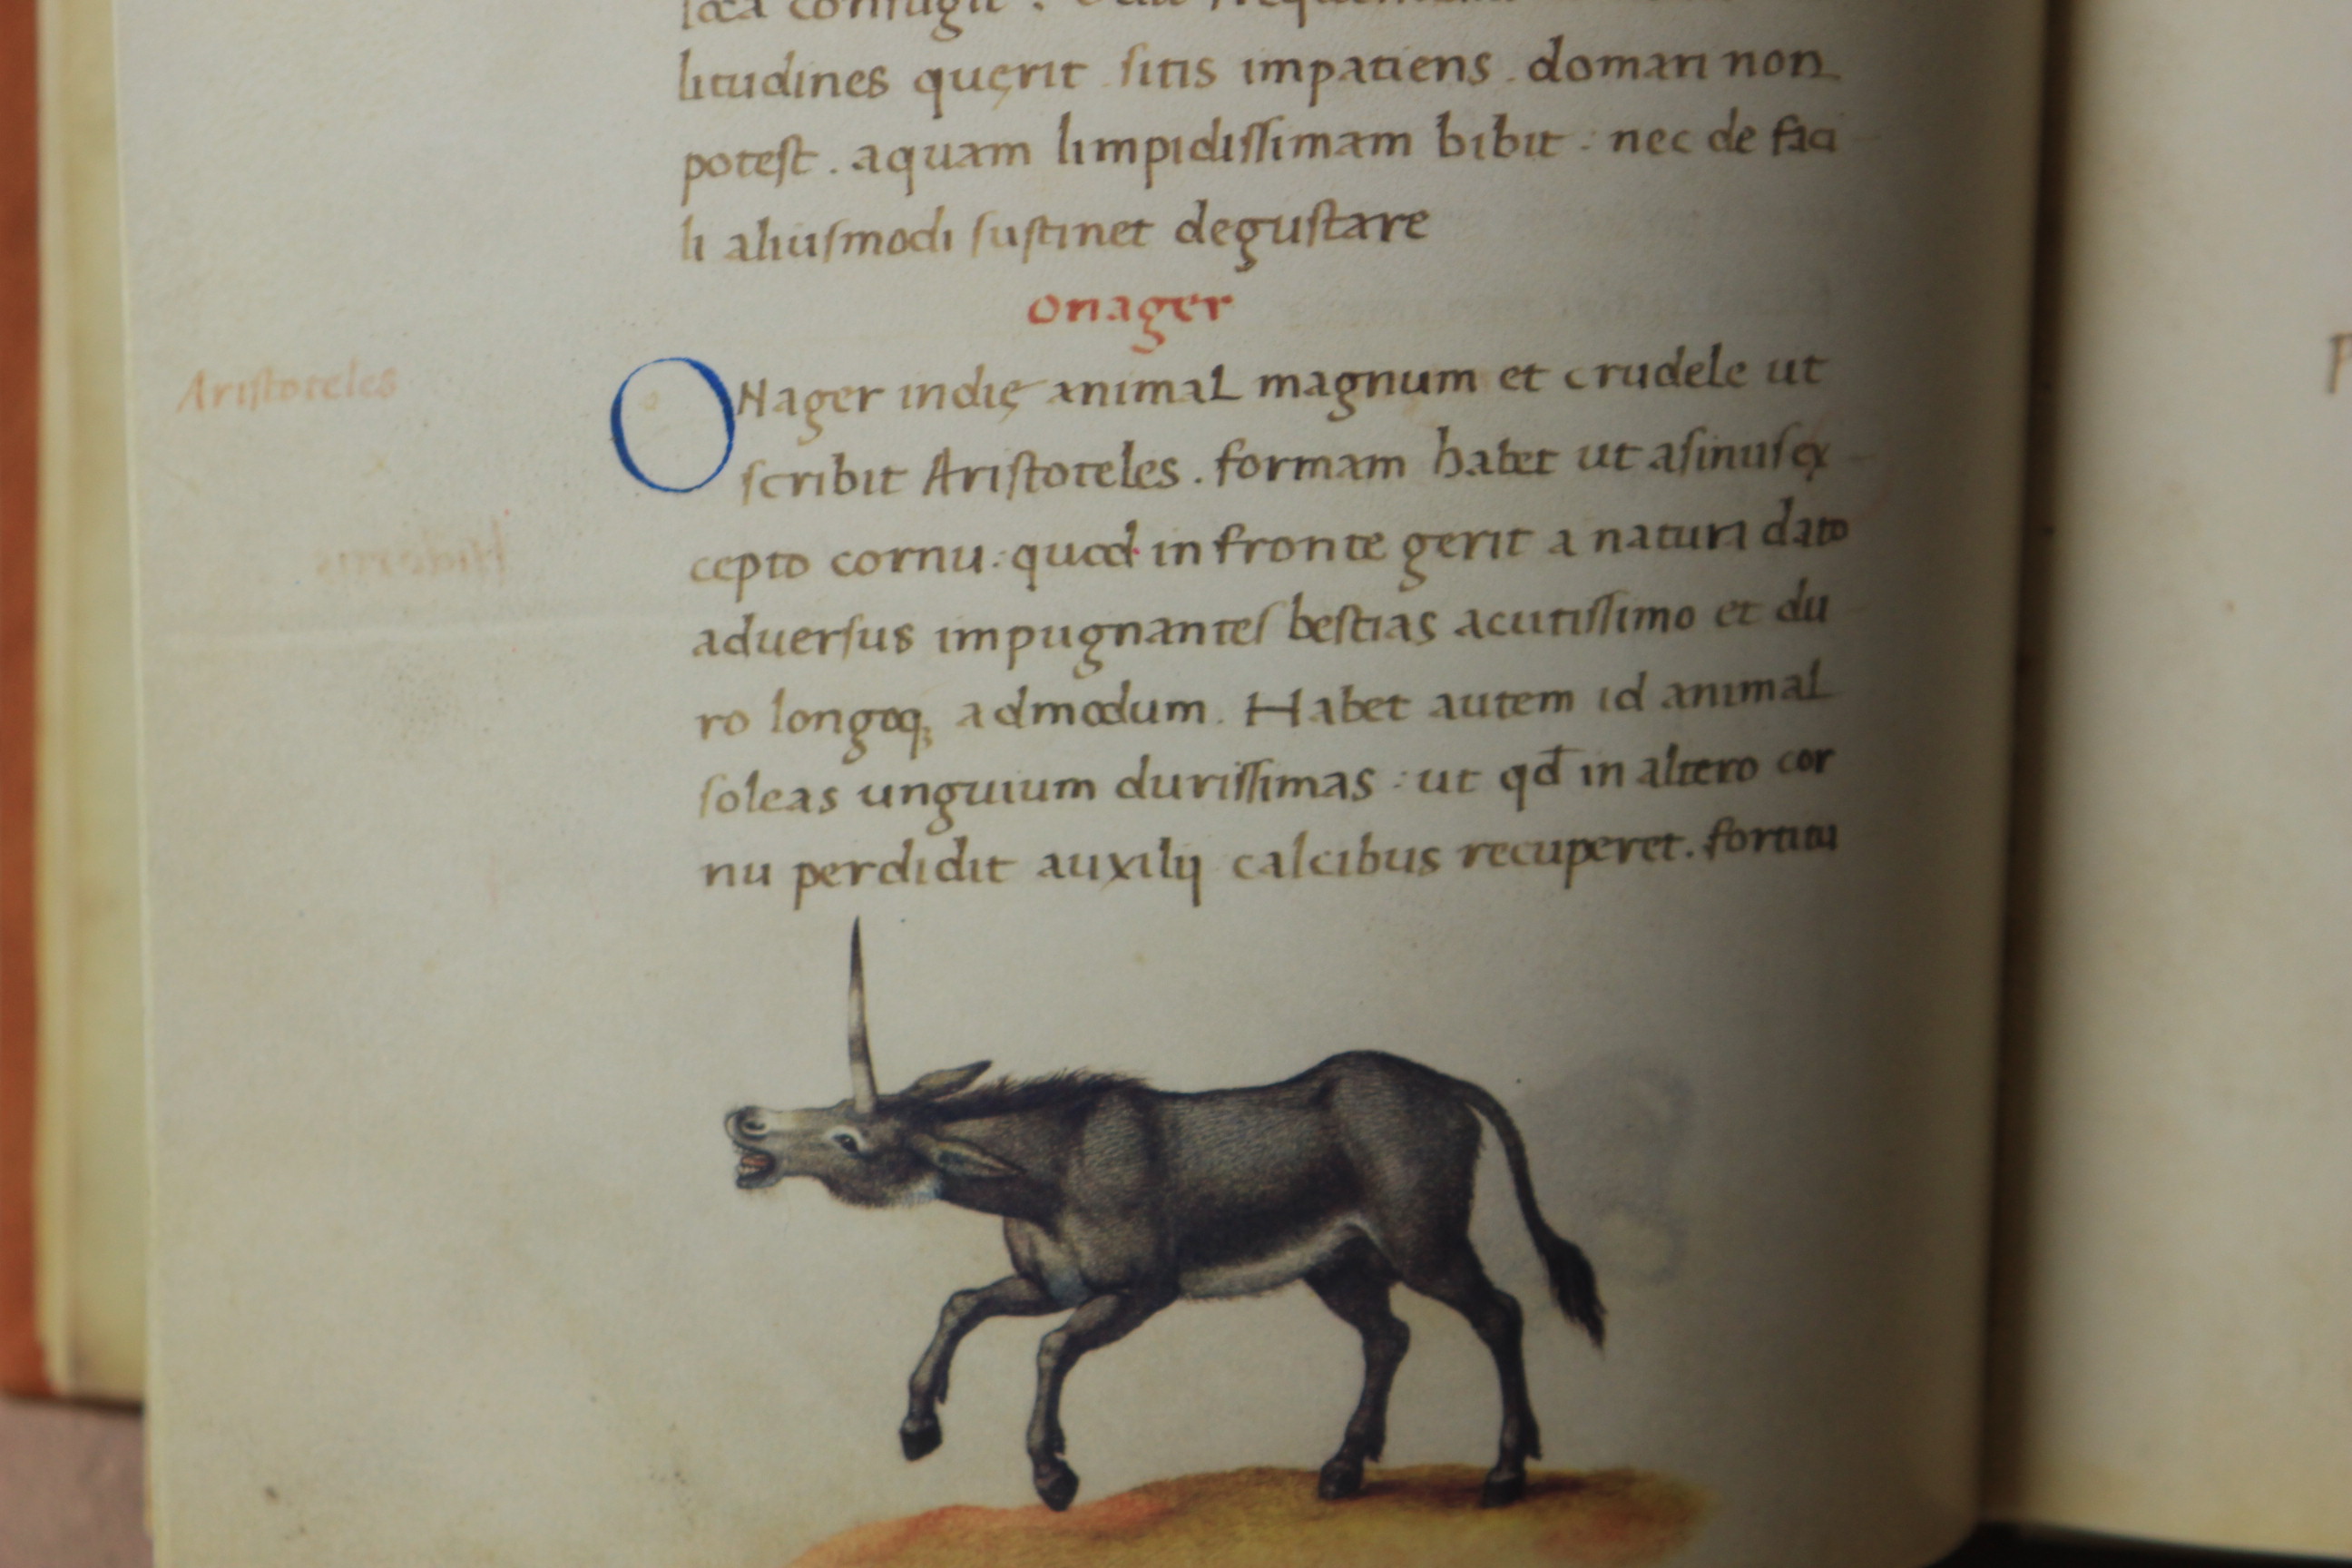 loca confugit.
litudines quęrit sitis impatiens. domari non
potest. aquam limpidissimam bibit: nec de faci
li aliusmodi sustinet degustare
onager
Aristoteles
ONager indię animal magnum et crudele ut
scribit Aristoteles. formam habet ut asinus ex
cepto cornu: quod in fronte gerit a natura dato
aduersus impugnantes bestias acutissimo et du
ro longoq; admodum. Habet autem id animal
soleas unguium durissimas: ut qd̄ in altero cor
nu perdidit auxilij calcibus recuperet.